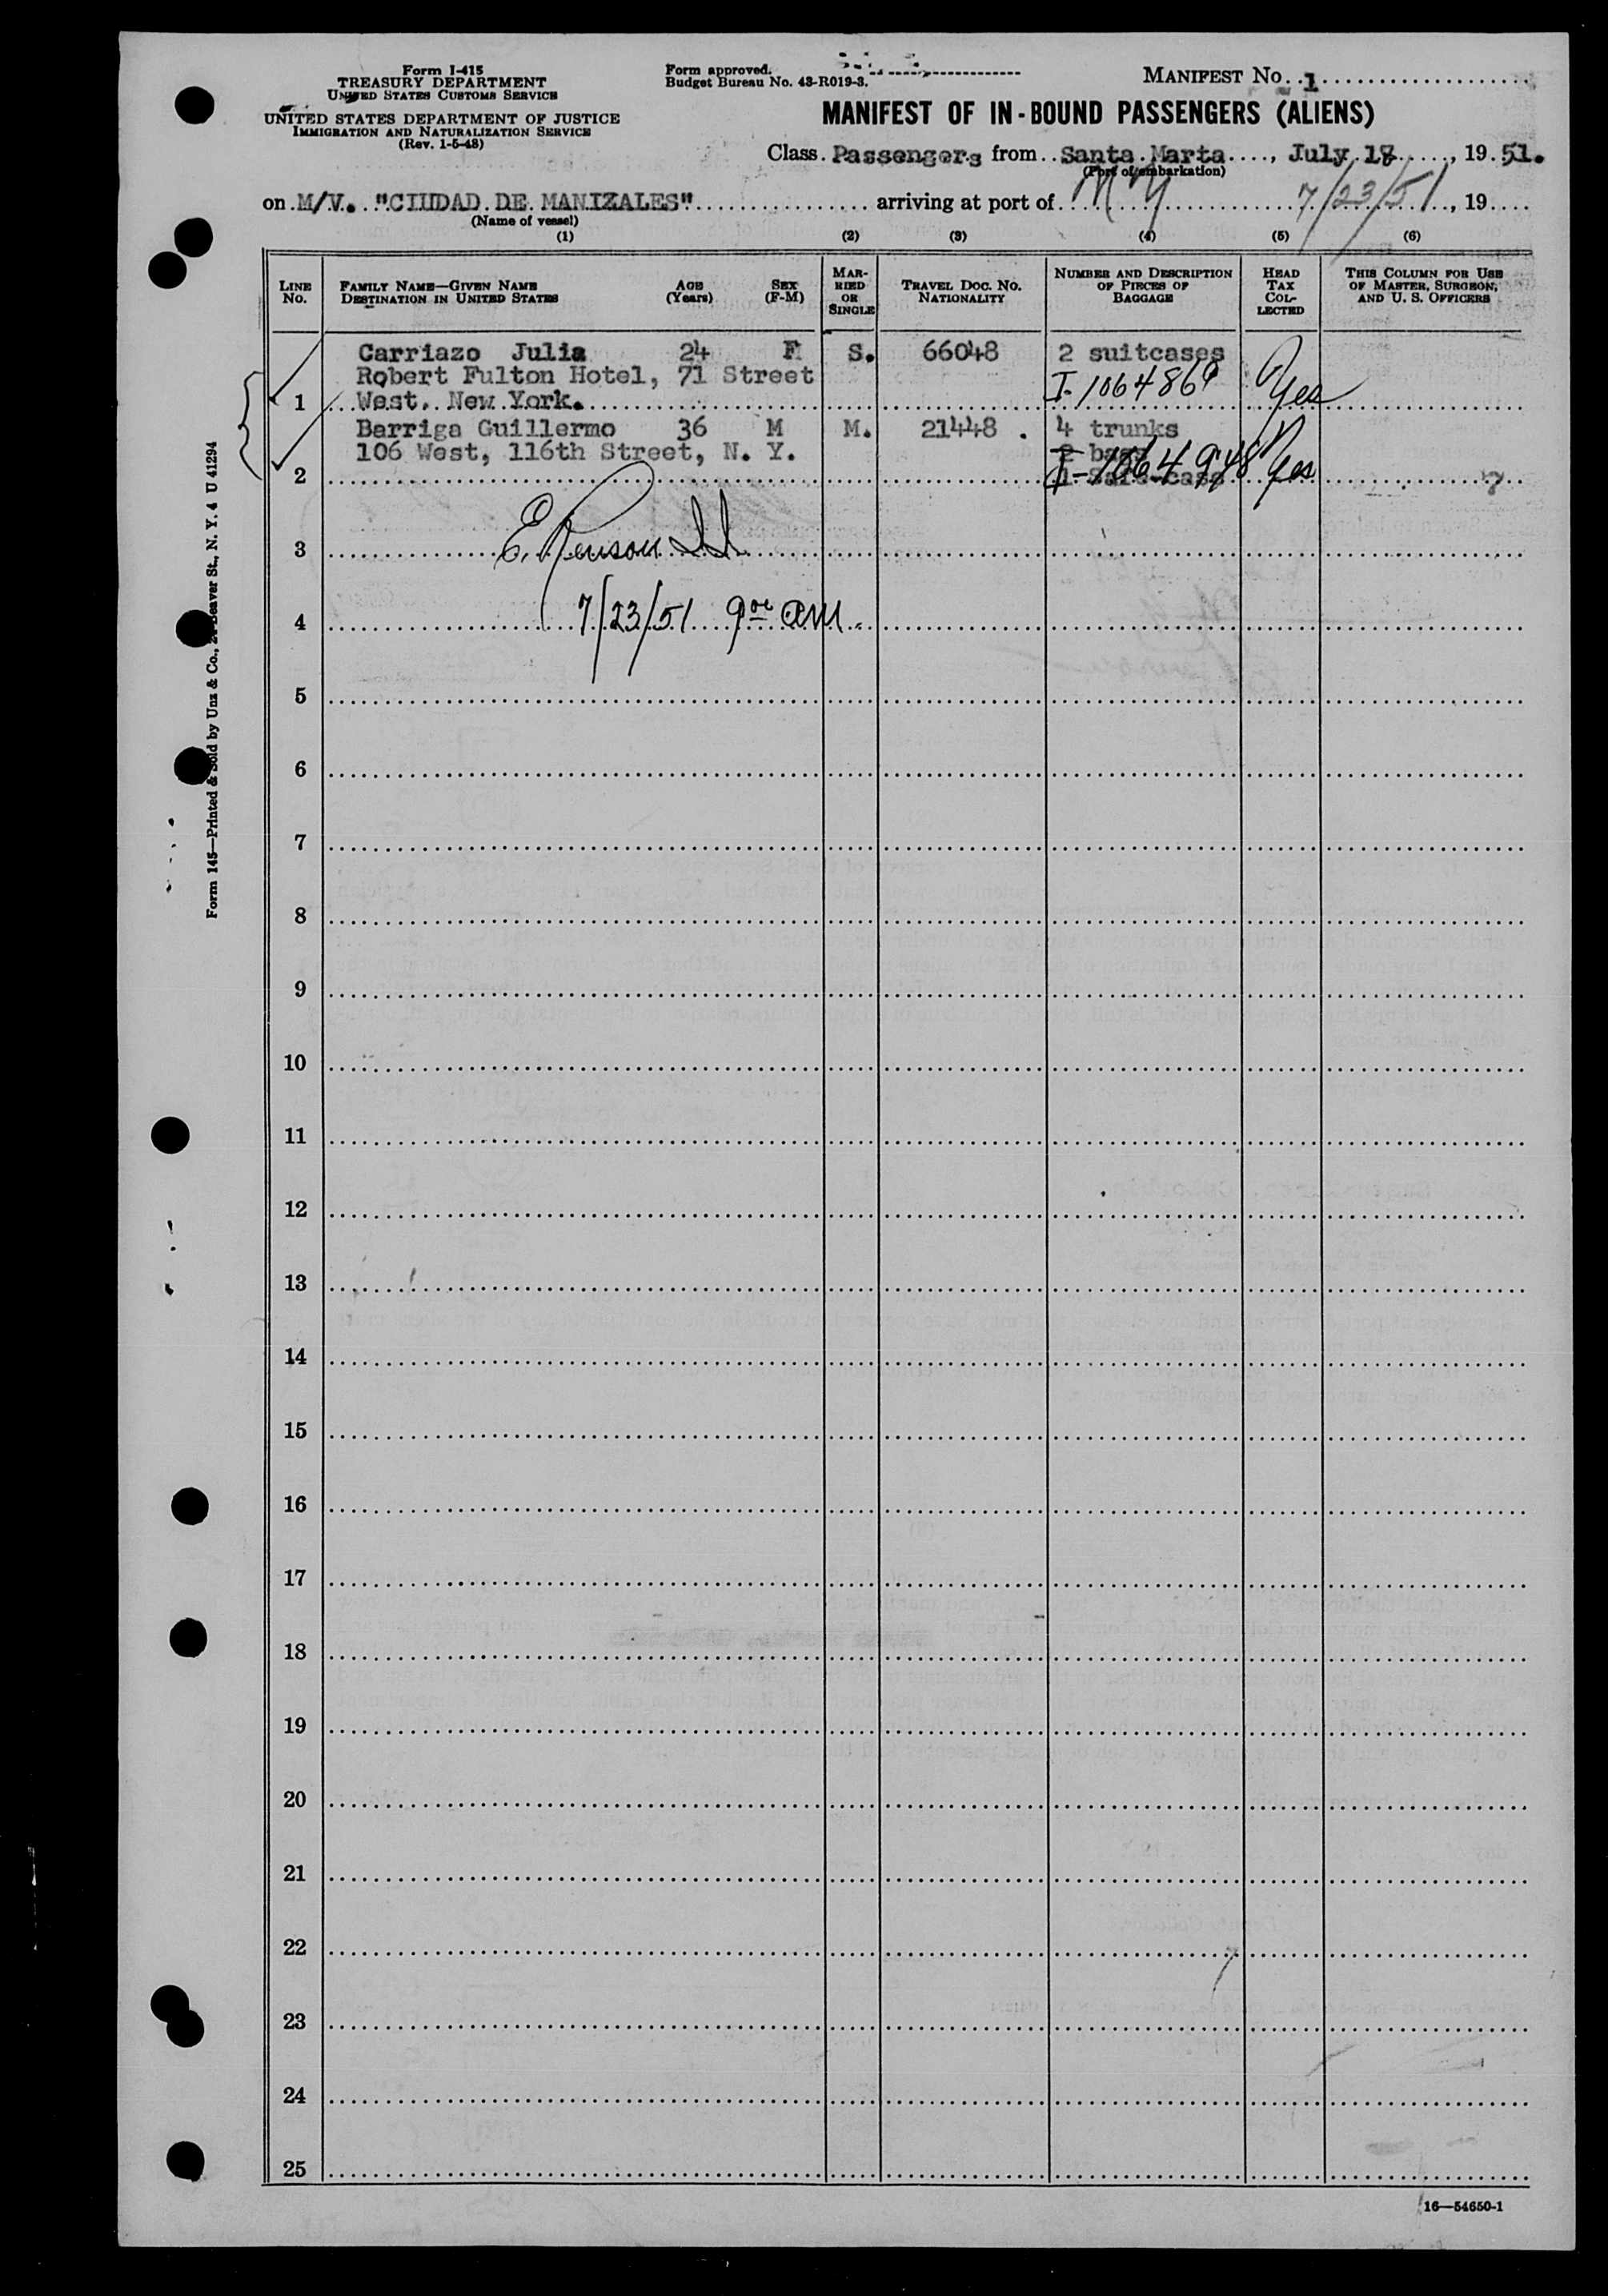 Form I-415
TREASURY DEPARTMENT
UNITED STATES CUSTOMS SERVICE
UNITED STATES DEPARTMENT OF JUSTICE
IMMIGRATION AND NATURALIZATION SERVICE
(Rev. 1-5-48)
Form approved.
Budget Bureau No. 43-R019-3.
MANIFEST NO. 1
MANIFEST OF IN-BOUND PASSENGERS (ALIENS)
Class Passengers from Santa Marta, July 18, 19 51.
(Port of embarkation)
on M/V. "CIUDAD DE MANIZALES" arriving at port of N Y 7/23/51, 19
(Name of vessel)
(1) (2) (3) (4) (5) (6)
LINE NO.
FAMILY NAME—GIVEN NAME
DESTINATION IN UNITED STATES
AGE (Years)
SEX (F-M)
MARRIED OR SINGLE
TRAVEL DOC. NO.
NATIONALITY
NUMBER AND DESCRIPTION
OF PIECES OF
BAGGAGE
HEAD TAX COLLECTED
THIS COLUMN FOR USE
OF MASTER, SURGEON,
AND U. S. OFFICERS
Carriazo Julia 24 F S. 66048 2 suitcases
Robert Fulton Hotel, 71 Street I-1064869
1 West. New York. Yes
Barriga Guillermo 36 M M. 21448 . 4 trunks
106 West, 116th Street, N. Y. 2 bags
2 I-1064948 Yes
3 E. 
4 7/23/51 9 00 AM
5
6
7
8
9
10
11
12
13
14
15
16
17
18
19
20
21
22
23
24
25
Form 145—Printed & Sold by Unz & Co., Beaver St., N. Y. 4 U 41294
16—54650-1